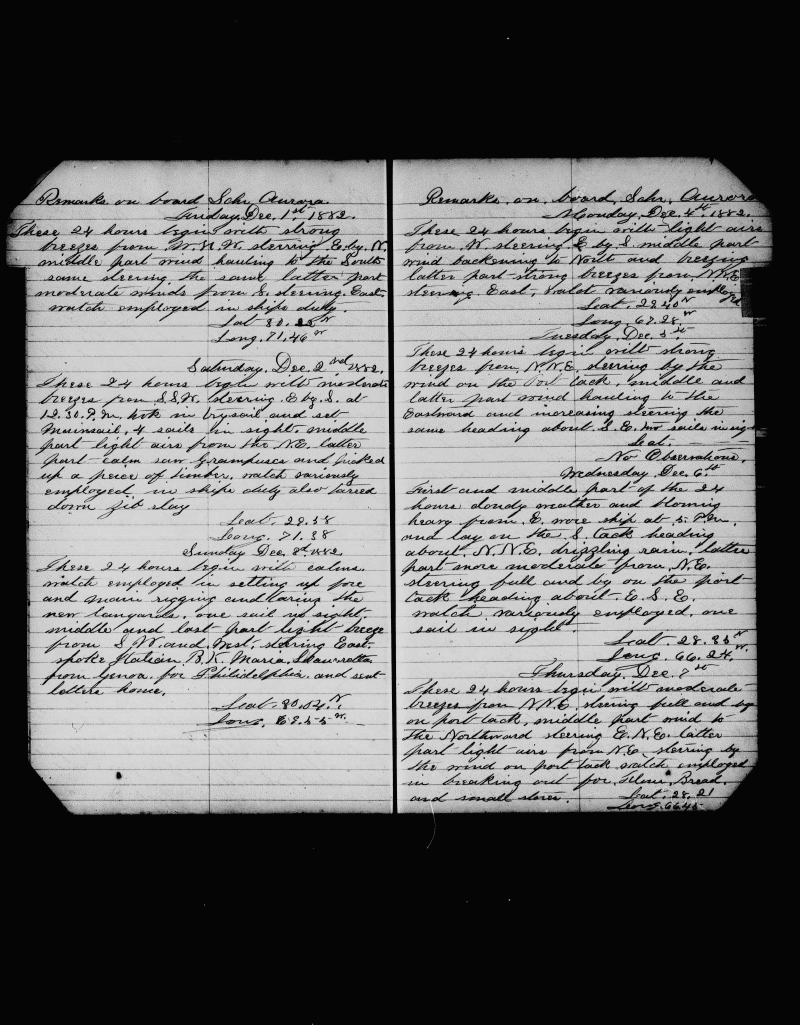 Remarks on board Schr. Aurora
Friday, Dec. 1st 1882.
These 24 hours begin with strong
breezes from W.N.W. sterring E. by N.
middle part wind hauling to the South
same steering the same latter part
moderate winds from S. steering East.
watch employed in ships duty.
Lat 30. N
Long. 71,46 W
Saturday, Dec. 2nd 1882.
These 24 hours begin with moderate
breezes from S.S.W. steering E by S. at
12.30. P.M. took in trysail and set
Mainsail, 4 sails in sight. middle
part light airs from the N.E. latter
part calm saw Grampuses and picked
up a peice of timber, watch variously
employed in ships duty also tarred
down jib stay
Lat. 29.58
Long. 71.38
Sunday Dec. 3d 1882
These 24 hours begin with calms.
watch employed in setting up fore
and main rigging and taring the
new lanyards. one sail in sight.
middle and last part light breeze
from S W. and West. staring East.
spoke Italian B.K. Maria
from Genoa. for Philidelphia. and sent
letters home.
Lat. 30.04 N.
Long. 69.55 W.
Remarks on board, Schr. Aurora
Monday, Dec. 4th 1882.
These 24 hours begin with light airs
from W. steering E by S. middle part
wind backening to North and breezing
latter part strong breezes from N.N.E
steering East, watch variously employed
Lat. 29.40 N
Long. 67.28. W
Tuesday, Dec. 5th.
These 24 hours begin with strong
breezes from N.N.E. sterring by the
wind on the Port tack. middle and
latter part wind hauling to the
Eastward and increasing steering the
same heading about S.E. two sails in sight
Lat.
No Observations.
Wednesday, Dec. 6th
First and middle part of the 24
hours cloudy weather and blowing
heavy from E. wore ship at 5. P.M.
and lay on the S. tack heading
about N.N.E. drizzling rain. latter
part more moderate from N.E.
steering full and by on the port
tack heading about E. S. E.
watch variously employed, one
sail in sight.
Lat. 28.35 N
Long. 66.24. W.
Thursday, Dec. 7th
These 24 hours begin with moderate
breezes from N.N.E. steering full and by
on port tack, middle part wind to
the Northward steering E.N.E. latter
part light airs from N.E. sterring by
the wind on port tack watch employed
in breaking out for, Flour, Bread.
and small stores.
Lat. 28.21
Long. 66.45